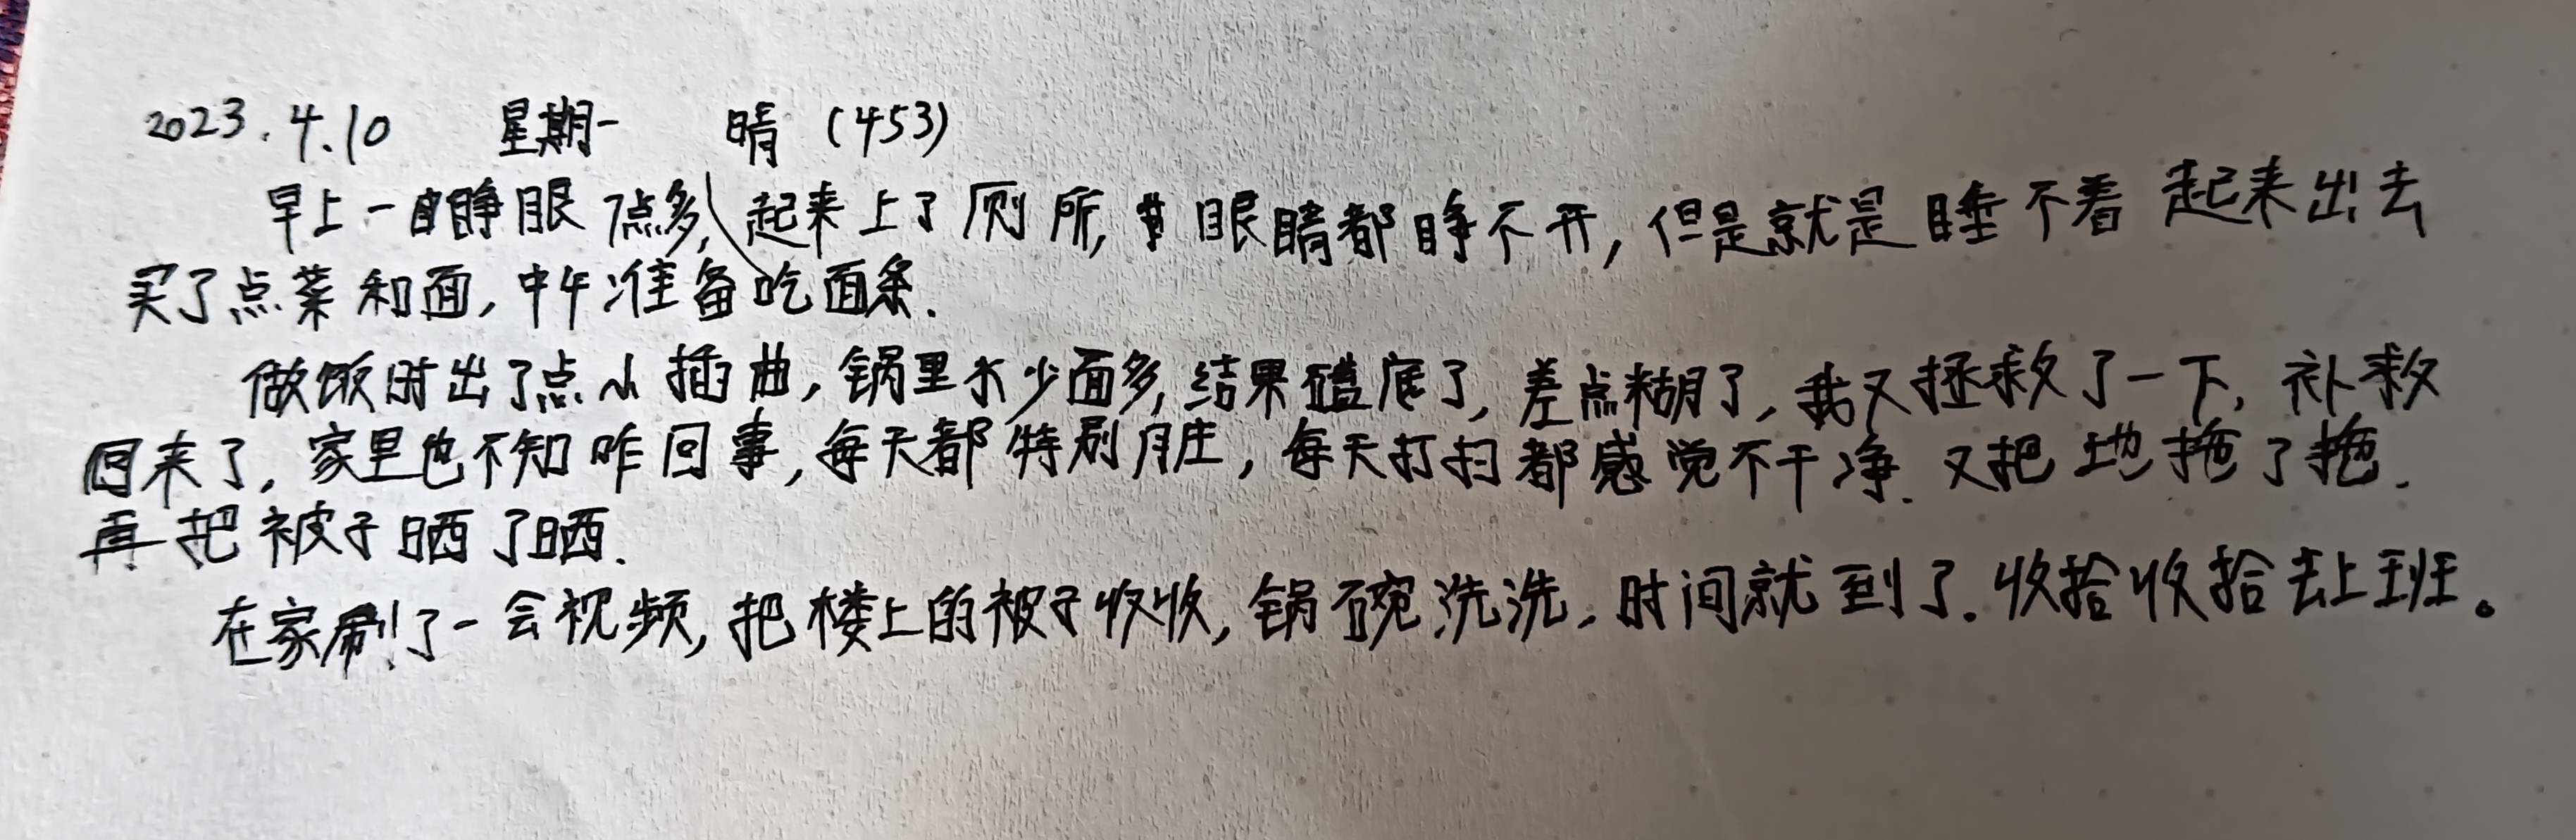 2023.4.10 星期一 晴 (453)
早上一睁眼7点多,起来上了厕所,眼睛都睁不开,但是就是睡不着 起来出去
买了点菜和面,中午准备吃面条.
做饭时出了点小插曲,锅里水少面多,结果底了,差点糊了,我又拯救了一下,补救
回来了,家里也不知咋回事,每天都特别脏,每天打扫都感觉不干净.又把地拖了拖.
再把被子晒了晒.
在家刷了一会视频,把楼上的被子收收,锅碗洗洗.时间就到了.收拾收拾去上班。